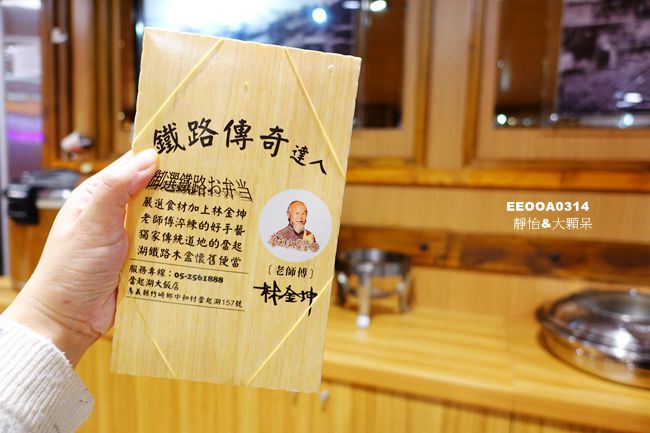 鐵路傳奇達人
御選鐵路お弁当
嚴選食材加上林金坤
老師傅淬練的好手藝
獨家傳統道地的奮起
湖鐵路木盒懷舊便當
服務專線：05-2561888
奮起湖大飯店
嘉義縣竹崎鄉中和村奮起湖157號
〔老師傅〕
林金坤
EEOOA0314
靜怡&大顆呆